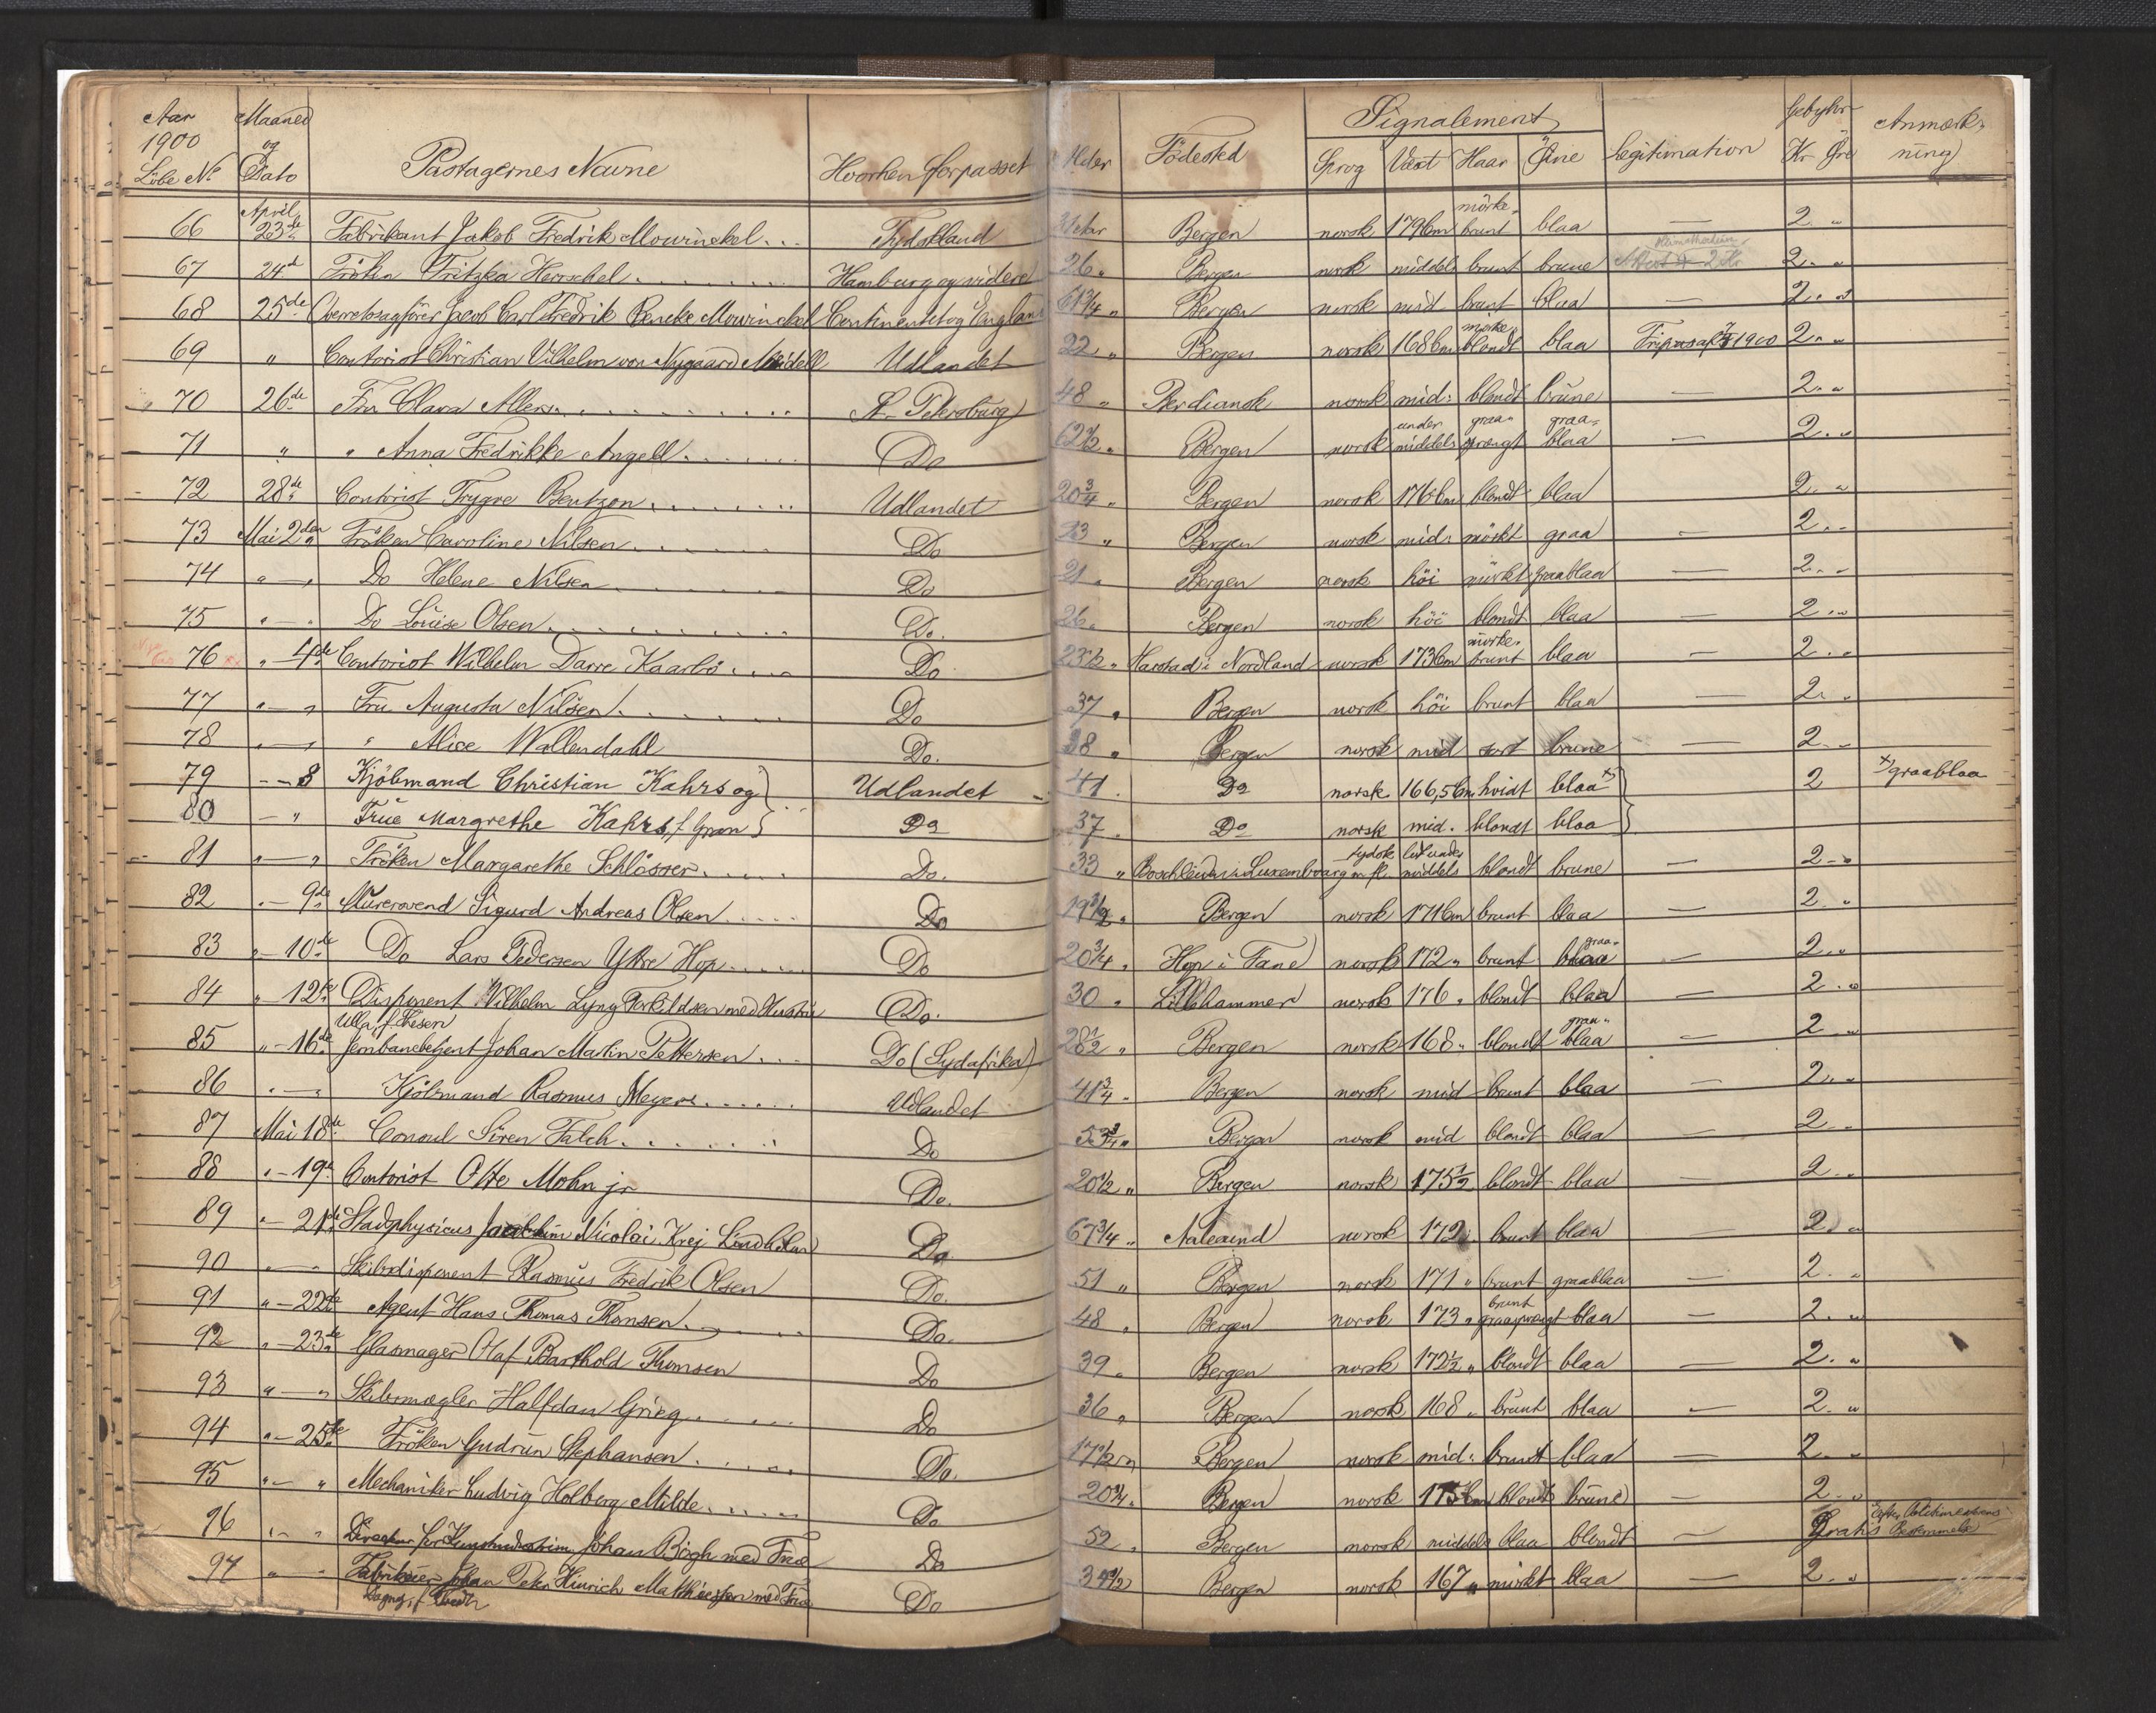 Aar Maaned
1900 og
Löbe No Dato Passagernes Navne Hvorhen forpasset Alder Födested Signalement Legitimation Gebyhr Anmærk-
Sprog Væxt Haar Öine Kr Öre ning
April mörke-
66 23de Fabrikant Jakob Fredrik Mowinckel Tydskland 31 Aar Bergen norsk 179 Cm brunt blaa — 2 "
67 24de Fröken Fritzka Herrschel Hamburg og videre 26 " Bergen norsk middels brunt brune 2 "
68 25de Overretssagförer Jacob Carl Fredrik Rencke Mowinckel Continentet og England 61 3/4 " Bergen norsk mid brunt blaa — 2 "
mörke-
69 " Contorist Christian Vilhelm von Nygaard Meidell Udlandet 22 " Bergen norsk 168 Cm blondt blaa 1900 2 "
70 26de Fru Clara Allers St. Petersburg 48 " Berdiansk norsk mid: blondt brune — 2 "
under graa- graa-
71 " " Anna Fredrikke Angell Do 62 1/2 " Bergen norsk middels sprængt blaa — 2 "
72 28de Contorist Trygve Bentzon Udlandet 20 3/4 " Bergen norsk 176 Cm blondt blaa 2 "
73 Mai 2den Fröken Caroline Nilsen Do 23 " Bergen norsk mid: mörkt graa — 2 "
74 " — " Do Helene Nilsen Do 21 " Bergen norsk höi mörkt graablaa — 2 "
75 " — " Do Louise Olsen Do. 26 " Bergen norsk höi blondt blaa — 2 "
mörke-
76 " 4de Contorist Wilhelm Darre Kaarbö Do 23 1/2 " Harstad i Nordland norsk 173 Cm brunt blaa — 2 "
77 " — " Fru Augusta Nilsen Do 37 " Bergen norsk höi brunt blaa — 2 "
78 " — " " Alice Wallendahl Do. 28 " Bergen norsk mid sort brune — 2 "
79 — " 8 Kjöbmand Christian Kahrs og Udlandet 41 Do norsk 166,5 Cm hvidt blaa x) 2 x) graablaa
80 — " Frue Margrethe Kahrs, f. Gran Do 37 Do norsk mid. blondt blaa
tydsk lidt under
81 " — " Fröken Margarethe Schlösser Do. 33 " Boschleiden i Luxembourg m. fl. middels blondt brune — 2 "
82 " — 9de Murersvend Sigurd Andreas Olsen Do 19 1/2 " Bergen norsk 171 Cm brunt blaa — 2 "
graa-
83 " — 10de Do Lars Pedersen Ytre Hop Do 20 3/4 " Hop i Fane norsk 172 " brunt blaa — 2 "
84 " — 12te Disponent Vilhelm Lyng Terkildsen med Hustru Do. 30 " Lillehammer norsk 176 " blondt blaa — 2 "
Ulla, f. Thesen graa-
85 " — 16de Jernbanebetjent Johan Martin Pettersen Do (Sydafrika) 28 1/2 " Bergen norsk 168 " blondt blaa — 2 "
86 " — " Kjöbmand Rasmus Meyer Udlandet 41 3/4 " Bergen norsk mid brunt blaa — 2 "
87 Mai 18de Consul Sören Falch Do 53 3/4 " Bergen norsk mid blondt blaa — 2 "
88 " — 19de Contorist Otto Mohn jr Do. 20 1/2 " Bergen norsk 175 1/2 blondt blaa — 2 "
89 " — 21de Stadphysicus Joachim Nicolai Krej Lindholm Do 67 3/4 " Aalesund norsk 172 " brunt blaa — 2 "
90 " — " Skibsdisponent Rasmus Fredrik Olsen Do. 51 " Bergen norsk 171 " brunt graablaa — 2 "
brunt
91 " — 22de Agent Hans Thomas Thomsen Do. 48 " Bergen norsk 173 " graasprængt blaa — 2 "
92 " — 23de Glasmager Olaf Barthold Thomsen Do 39 " Bergen norsk 172 1/2 " blondt blaa — 2 "
93 " — " Skibsmægler Halfdan Grieg Do 36 " Bergen norsk 168 " brunt blaa — 2 "
94 " — 25de Fröken Gudrun Stephansen Do. 17 1/2 " Bergen norsk mid: brunt blaa — 2 "
95 " — " Mechaniker Ludvig Holberg Milde Do 20 3/4 " Bergen norsk 175 Cm blondt brune — 2 "
96 " — " Direktör for Kunstindustrim. Johan Bögh med Frue Do 52 " Bergen norsk middels blaa blondt — Gratis efter Politimesterens Bestemmelse
97 " — " Fabrikeier Johan Peter Hinrich Matthiessen med Frue Do 34 1/2 Bergen norsk 167 " mörkt blaa — 2 "
Dagny, f.